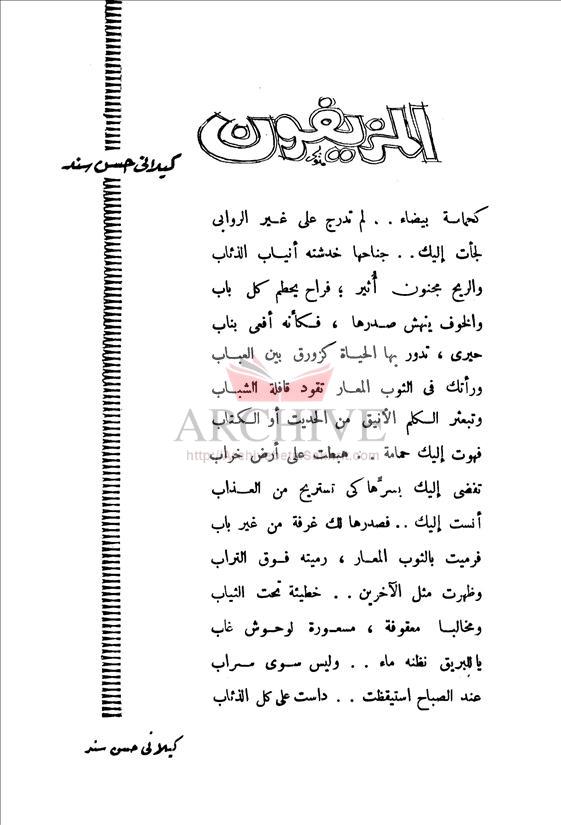 المزيفون
كيلاني حسن سند
كحمامة بيضاء . . لم تدرج على غير الروابي
لجأت إليك . . جناحها خدشته أنياب الذئاب
والريح مجنون أُثير ؛ فراح يحطم كل باب
والخوف ينهش صدرها ، فكأنه أفعى بناب
حيرى ، تدور بها الحياة كزورق بين العباب
ورأتك فى الثوب المعار تقود قافلة الشباب
وتبعثر الكلم الأنيق من الحديث أو الكتاب
فهوت إليك حمامة . . هبطت على أرض خراب
تفضى إليك بسرِّها كى تستريح من العذاب
أنست إليك . . فصدرها لك غرفة من غير باب
فرميت بالثوب المعار ، رميته فوق التراب
وظهرت مثل الآخرين . . خطيئة تحت الثياب
ومخالبا معقوفة ، مسعورة لوحوش غاب
ياللبريق نظنه ماء . . وليس سوى سراب
عند الصباح استيقظت . . داست على كل الذئاب
كيلانى حسن سند
ARCHIVE